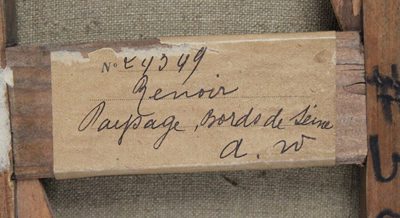 No 24349
Renoir
Paysage, Bords de Seine
a. W